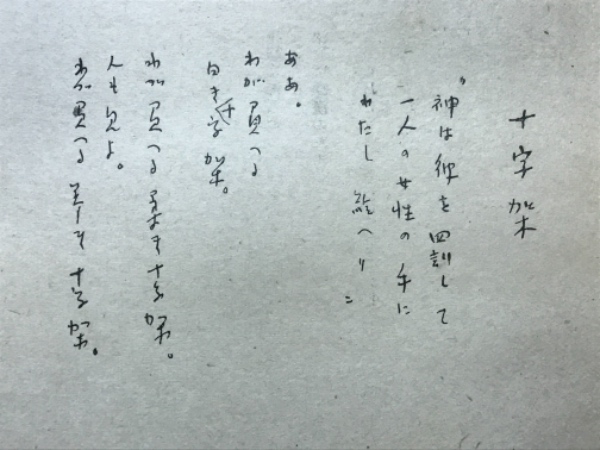 十字架
“神は彼を罰して
一人の女性の手に
わたし給へり”
ああ。
わが負へる
白き十字架。
わが負へる 十字架。
人も見よ。
わが負へる 美しき 十字架。